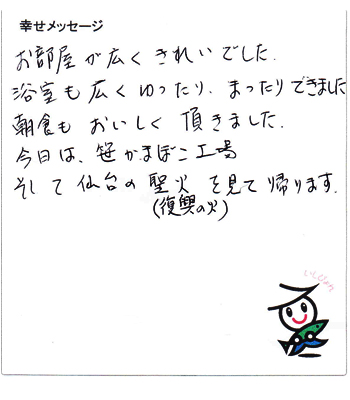 幸せメッセージ
お部屋が広くきれいでした.
浴室も広くゆったり、まったりできました
朝食もおいしく頂きました.
今日は、笹かまぼこ工場
そして仙台の聖火を見て帰ります.
(復興の火)